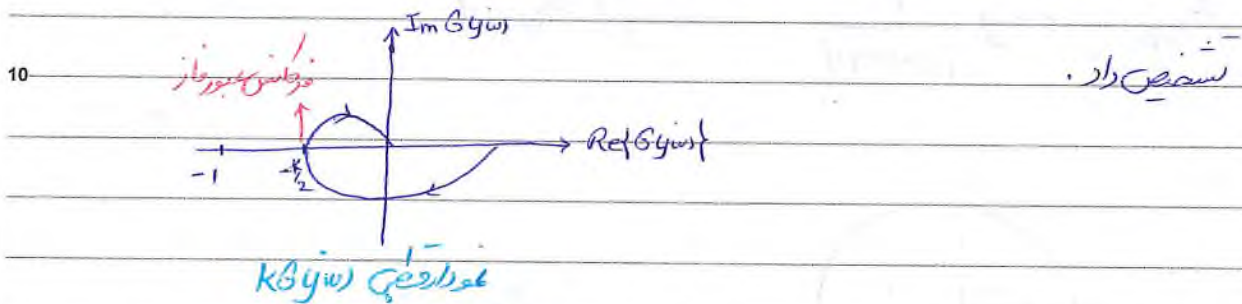 Im G(jω)
10
تشخیص داد.
فرکانس عبور فاز
Re{G(jω)}
-1
-k/2
نمودار قطبی kG(jω)